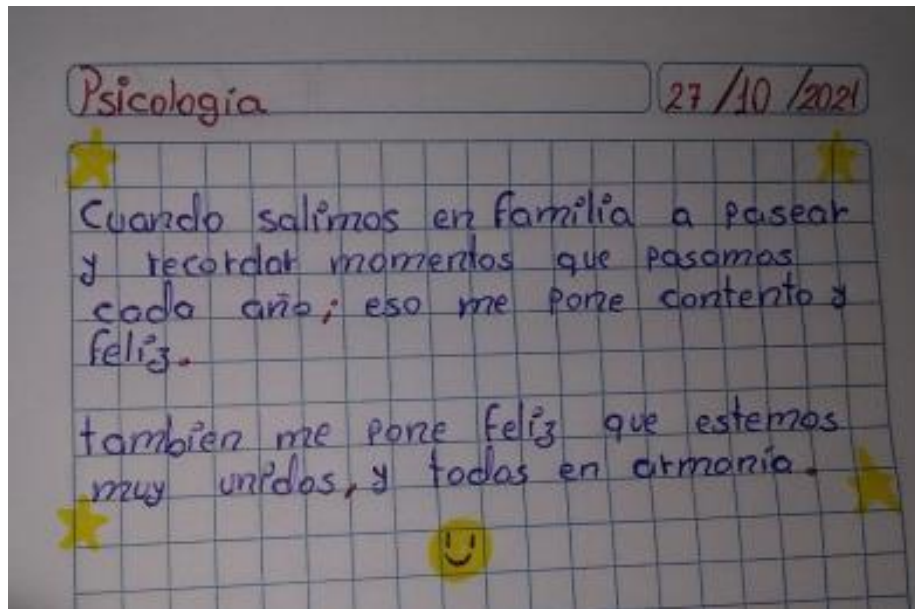 Psicologia
27/10/2021
Cuando salimos en familia a pasear
y recordar momentos que pasamos
cada año; eso me pone contento y
feliz.
tambien me pone feliz que estemos
muy unidos, y todos en armonia.